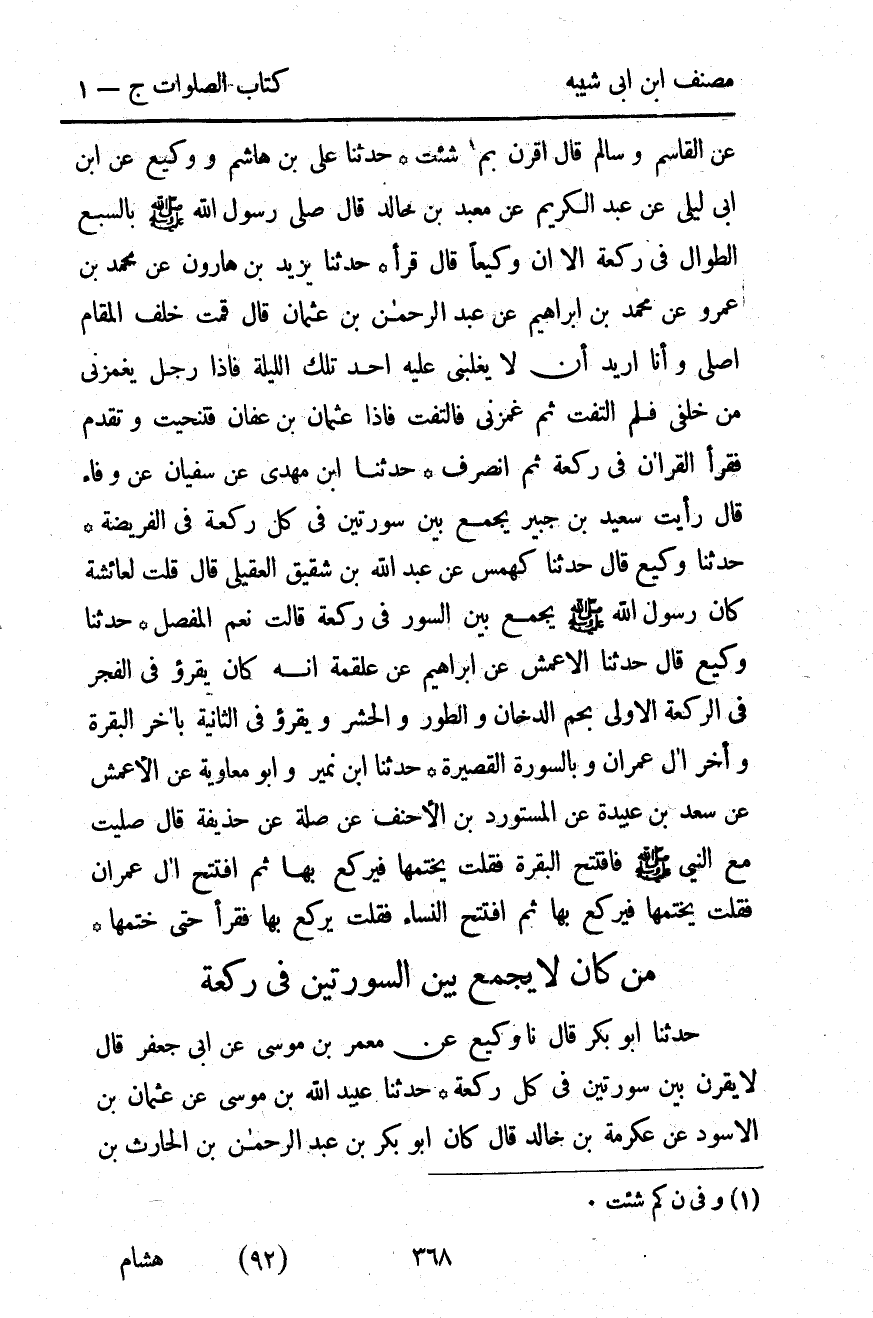 مصنف ابن ابى شيبه كتاب الصلوات ج — ١
عن القاسم و سالم قال اقرن بم ١ شئت * حدثنا على بن هاشم و وكيع عن ابن
ابى ليلى عن عبد الكريم عن معبد بن خالد قال صلى رسول الله ﷺ بالسبع
الطوال فى ركعة الا ان وكيعاً قال قرأ * حدثنا يزيد بن هارون عن محمد بن
عمرو عن محمد بن ابراهيم عن عبد الرحمٰن بن عثمان قال قمت خلف المقام
اصلى و أنا اريد أن لا يغلبنى عليه احد تلك الليلة فاذا رجل يغمزنى
من خلفى فلم التفت ثم غمزنى فالتفت فاذا عثمان بن عفان فتنحيت و تقدم
فقرأ القراٰن فى ركعة ثم انصرف * حدثنا ابن مهدى عن سفيان عن وفاء
قال رأيت سعيد بن جبير يجمع بين سورتين فى كل ركعة فى الفريضة *
حدثنا وكيع قال حدثنا كهمس عن عبد الله بن شقيق العقيلى قال قلت لعائشة
كان رسول الله ﷺ يجمع بين السور فى ركعة قالت نعم المفصل * حدثنا
وكيع قال حدثنا الاعمش عن ابراهيم عن علقمة انه كان يقرؤ فى الفجر
فى الركعة الاولى بحم الدخان و الطور و الحشر و يقرؤ فى الثانية باٰخر البقرة
و أخر اٰل عمران و بالسورة القصيرة * حدثنا ابن نمير و ابو معاوية عن الأعمش
عن سعد بن عبيدة عن المستورد بن الأحنف عن صلة عن حذيفة قال صليت
مع النبى ﷺ فافتتح البقرة فقلت يختمها فيركع بها ثم افتتح اٰل عمران
فقلت يختمها فيركع بها ثم افتتح النساء فقلت يركع بها فقرأ حتى ختمها *
من كان لا يجمع بين السورتين فى ركعة
حدثنا ابو بكر قال نا وكيع عن معمر بن موسى عن ابى جعفر قال
لا يقرن بين سورتين فى كل ركعة * حدثنا عبيد الله بن موسى عن عثمان بن
الاسود عن عكرمة بن خالد قال كان ابو بكر بن عبد الرحمٰن بن الحارث بن
(١) و فى ن كم شئت ٠
٣٦٨ (٩٢) هشام